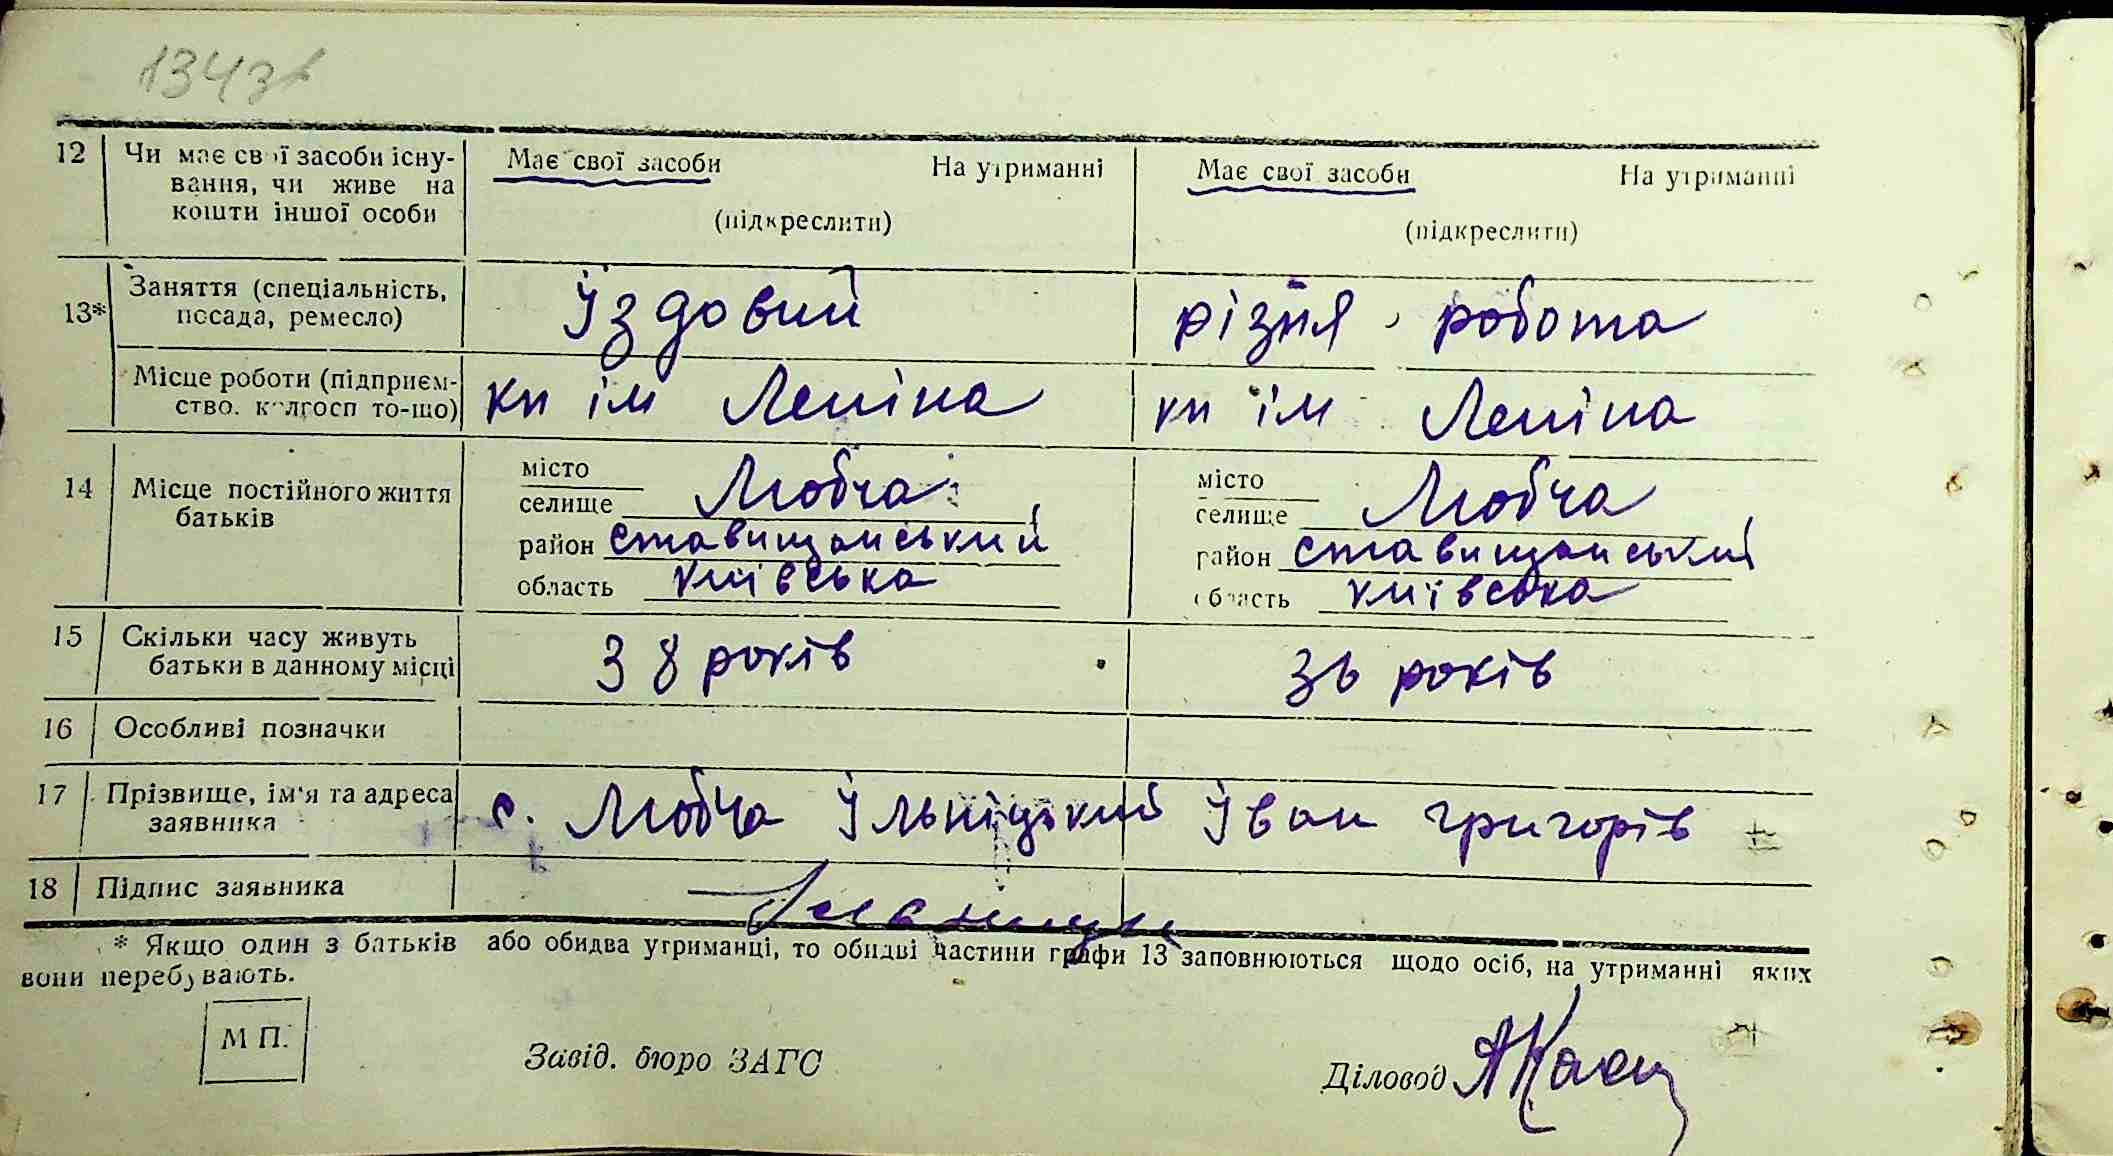 134зв
12 Чи має свої засоби існу- Має свої засоби На утриманні Має свої засоби На утриманні
вання, чи живе на
кошти іншої особи (підкреслити) (підкреслити)
13* Заняття (спеціальність, Їздовий різня робота
посада, ремесло)
Місце роботи (підприєм- кп ім Леніна кп ім Леніна
ство. колгосп то-що)
14 Місце постійного життя місто місто
батьків селище Любча, селище Любча,
район ставищанський район ставищанський
область київська область київська
15 Скільки часу живуть 38 років 36 років
батьки в данному місці
16 Особливі позначки
17 Прізвище, ім'я та адреса с. Любча Їльніцький Їван григорів
заявника
18 Підпис заявника
* Якщо один з батьків або обидва утриманці, то обидві частини графи 13 заповнюються щодо осіб, на утриманні яких
вони перебувають.
М П.
Завід. бюро ЗАГС
Діловод